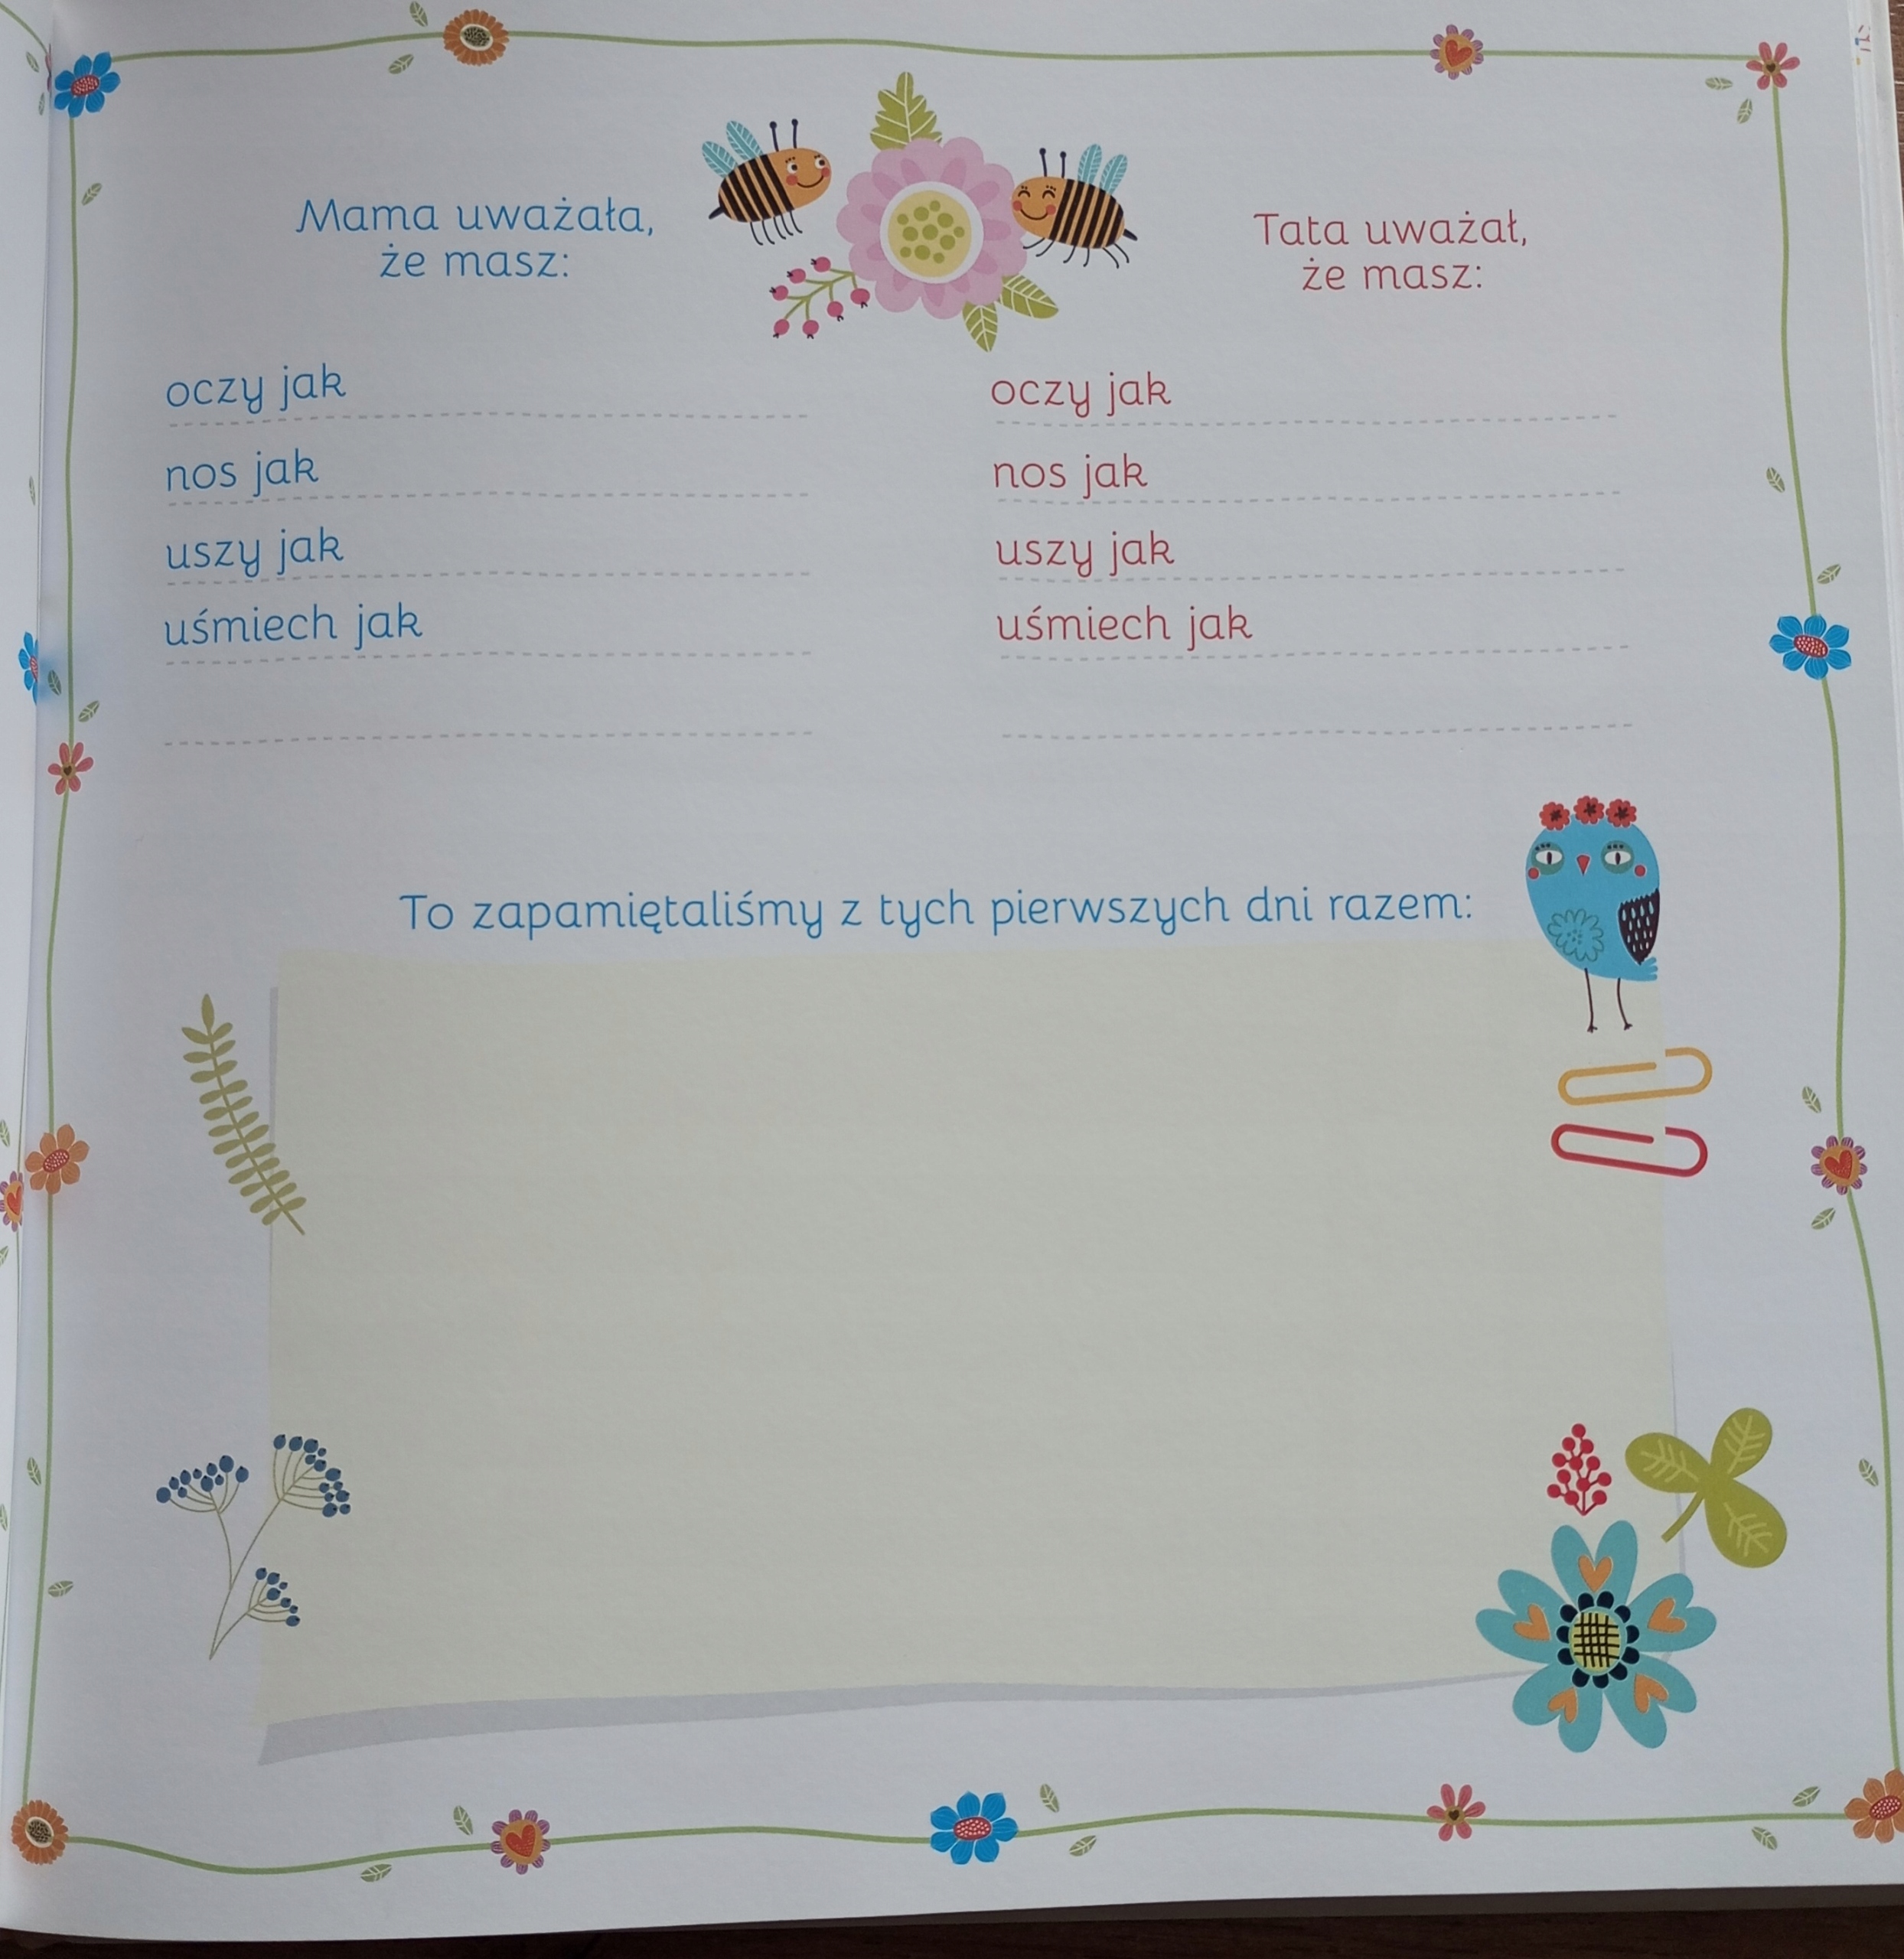 Mama uważała,
że masz:
oczy jak
nos jak
uszy jak
uśmiech jak
Tata uważał,
że masz:
oczy jak
nos jak
uszy jak
uśmiech jak
To zapamiętaliśmy z tych pierwszych dni razem: